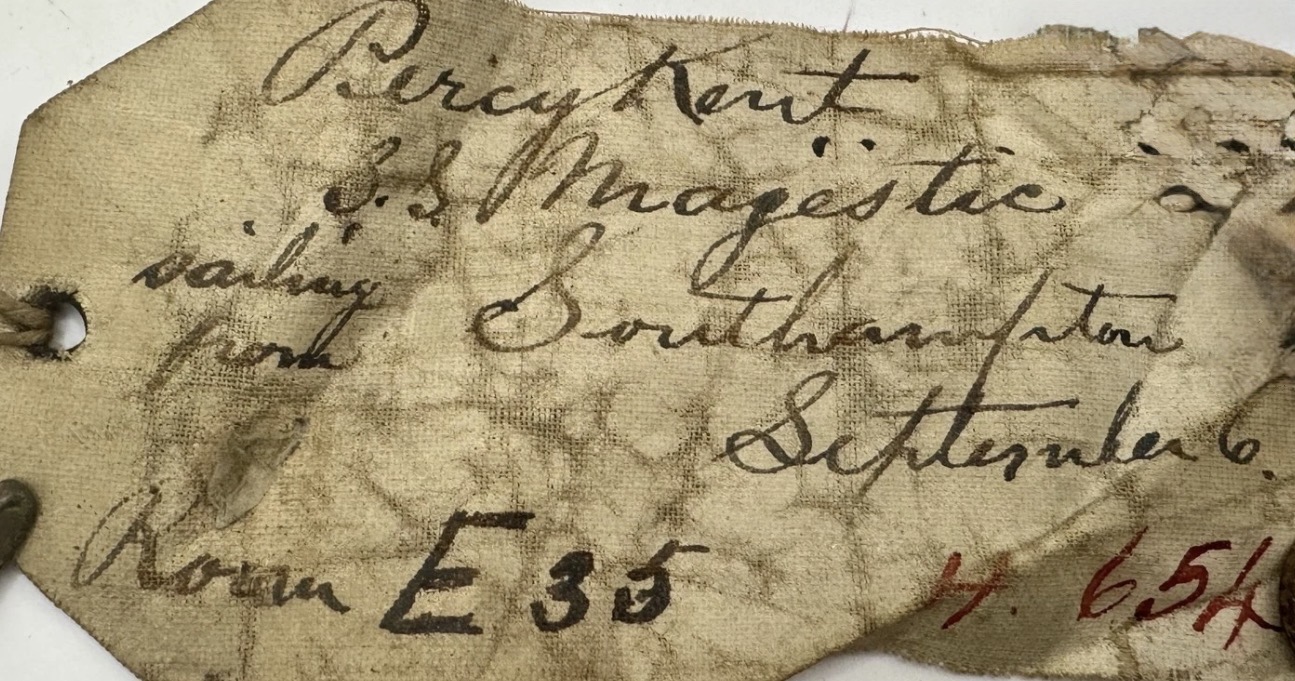 Percy Kent
S.S. Majestic
sailing
from Southampton
September 6.
Room E 35
H. 654